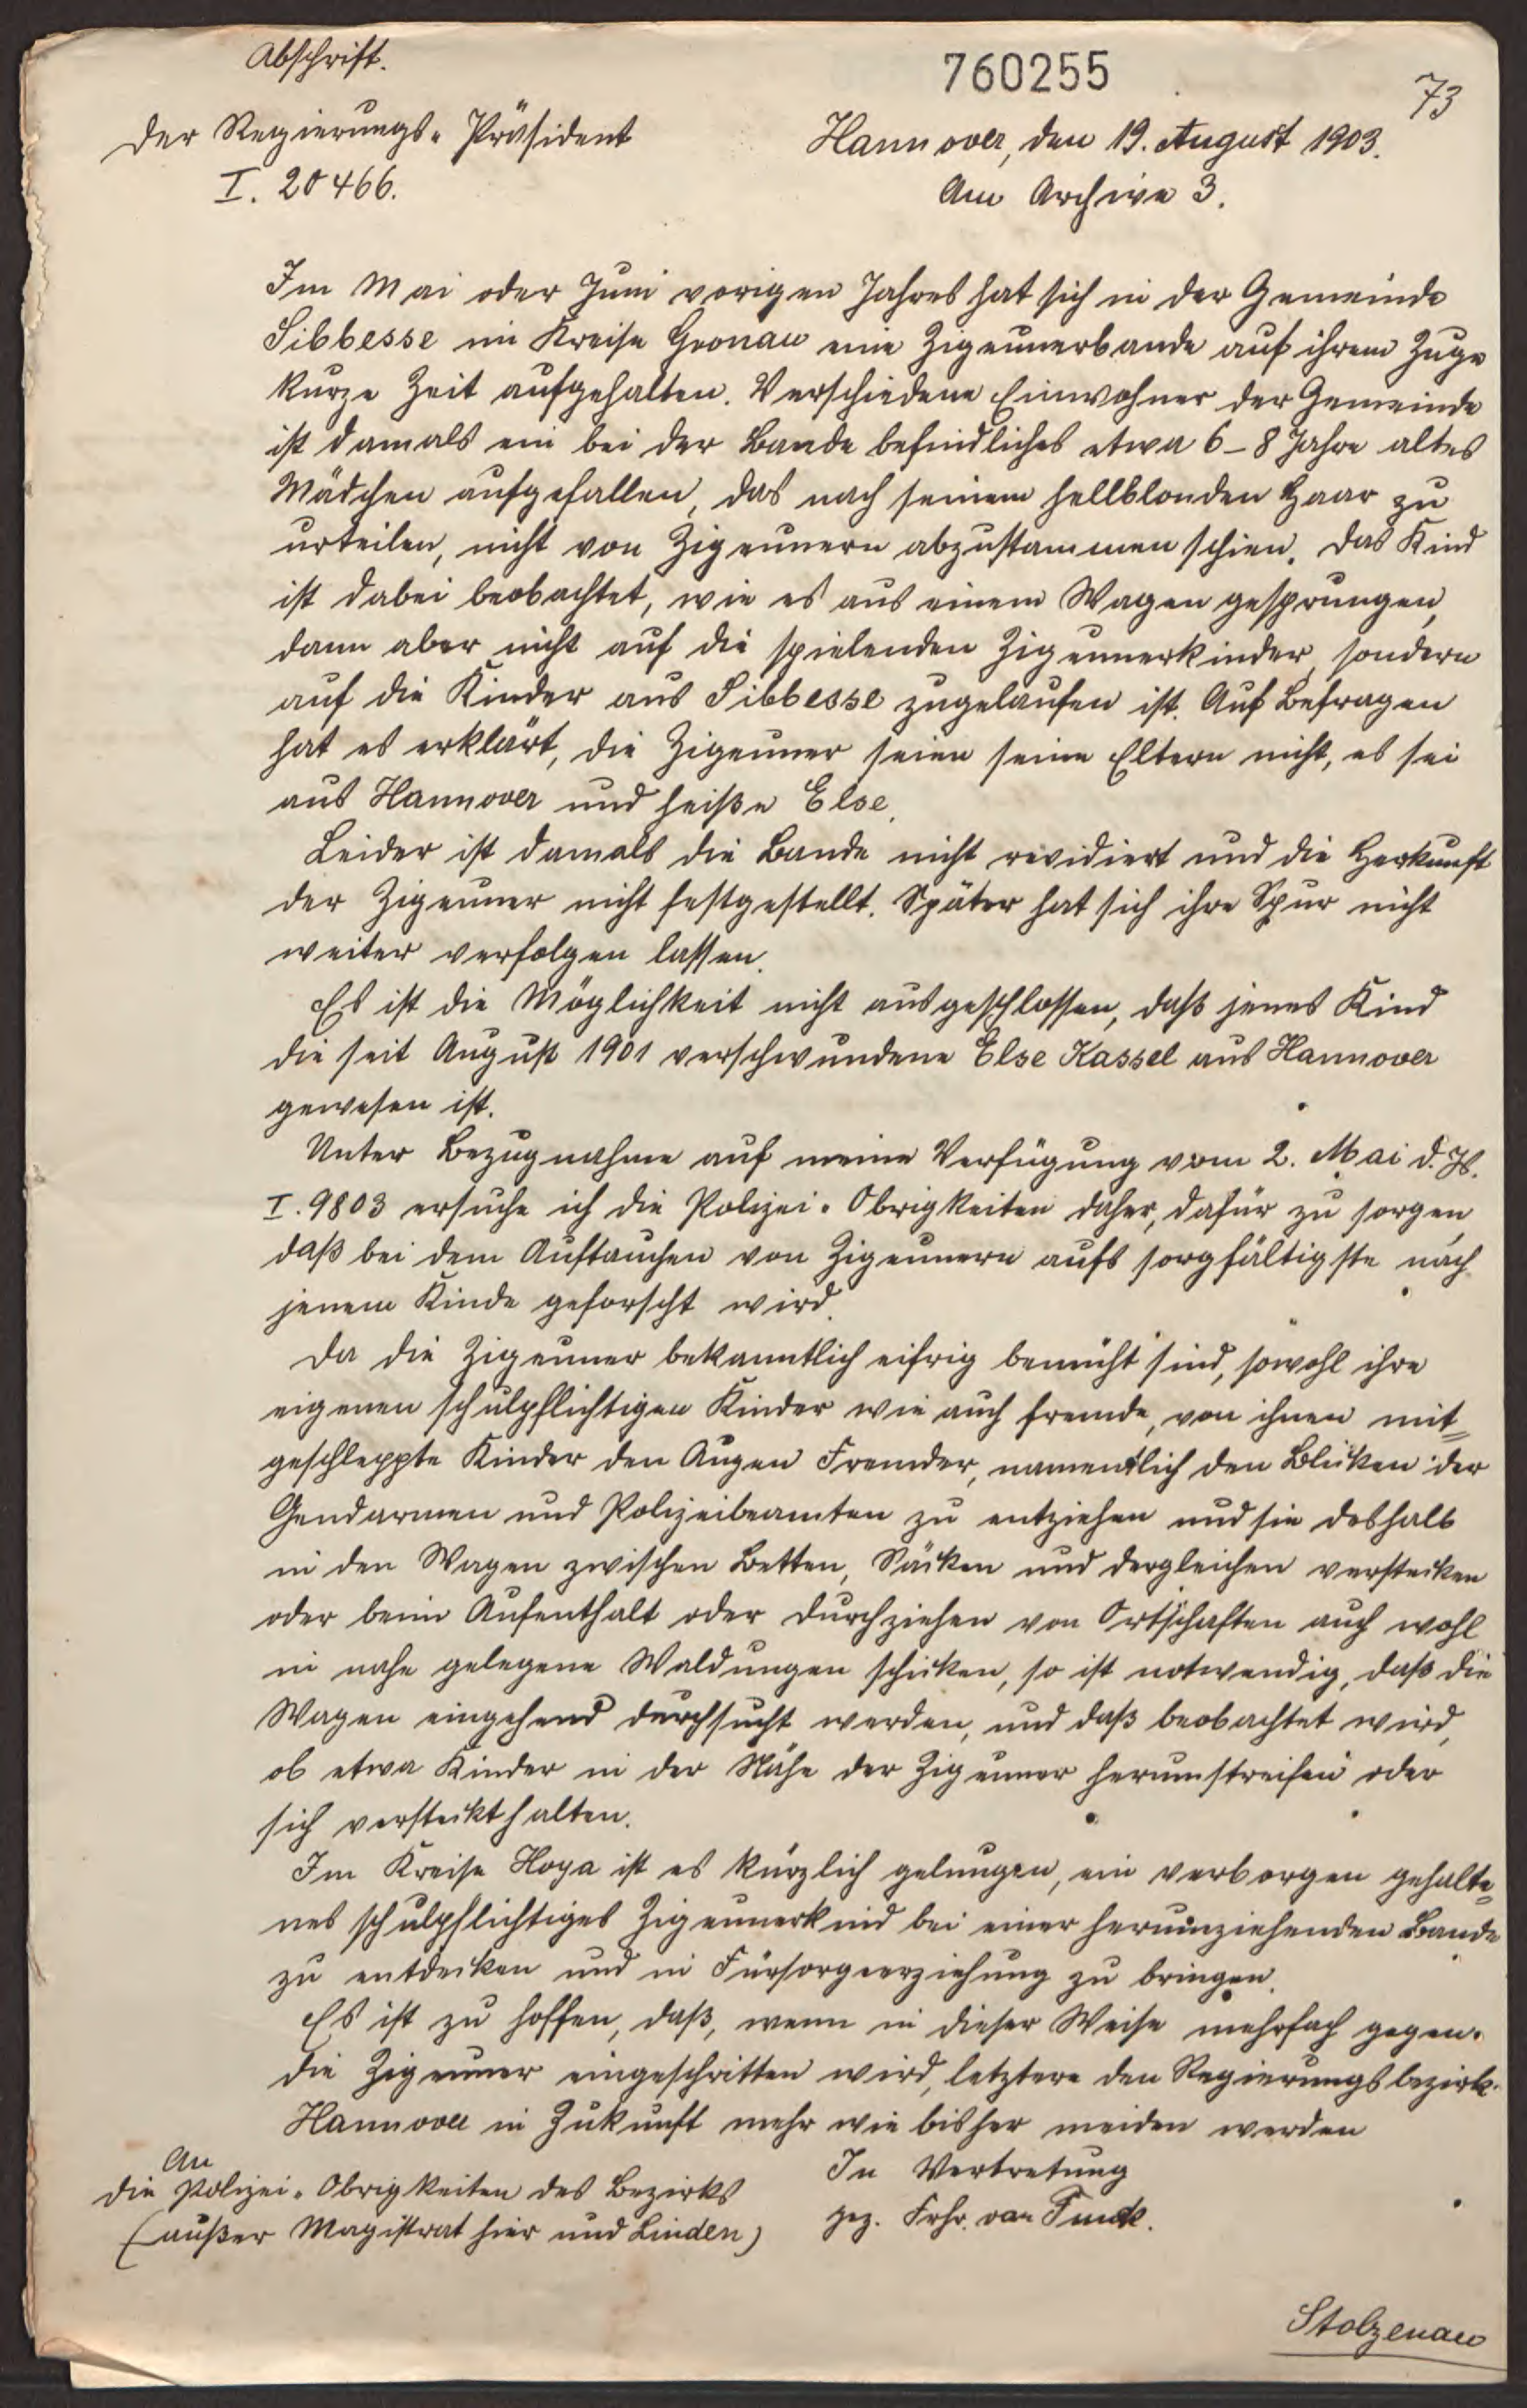 Abschrift.
760255
73
Der Regierungs-Präsident
Hannover, den 19. August 1903.
I. 20466.
Am Archive 3.
Im Mai oder Juni vorigen Jahres hat sich in der Gemeinde
Sibbesse im Kreise Gronau eine Zigeunerbande auf ihrem Zuge
kurze Zeit aufgehalten. Verschiedene Einwohner der Gemeinde
ist damals ein bei der Bande befindliches etwa 6-8 Jahre altes
Mädchen aufgefallen, das nach seinem hellblonden Haar zu
urteilen, nicht von Zigeunern abzustammen schien. Das Kind
ist dabei beobachtet, wie es aus einem Wagen gesprungen,
dann aber nicht auf die spielenden Zigeunerkinder, sondern
auf die Kinder aus Sibbesse zugelaufen ist. Auf Befragen
hat es erklärt, die Zigeuner seien seine Eltern nicht, es sei
aus Hannover und heiße Else.
Leider ist damals die Bande nicht revidiert und die Herkunft
der Zigeuner nicht festgestellt. Später hat sich ihre Spur nicht
weiter verfolgen lassen.
Es ist die Möglichkeit nicht ausgeschlossen, daß jenes Kind
die seit August 1901 verschwundene Else Kassel aus Hannover
gewesen ist.
Unter Bezugnahme auf meine Verfügung vom 2. Mai d. Js.
I. 9803 ersuche ich die Polizei-Obrigkeiten daher, dafür zu sorgen,
daß bei dem Auftauchen von Zigeunern aufs sorgfältigste nach
jenem Kinde geforscht wird.
Da die Zigeuner bekanntlich eifrig bemüht sind, sowohl ihre
eigenen schulpflichtigen Kinder wie auch fremde, von ihnen mit=
geschleppte Kinder den Augen Fremder, namentlich den Blicken der
Gendarmen und Polizeibeamten zu entziehen und sie deshalb
in den Wagen zwischen Betten, Säcken und dergleichen verstecken
oder beim Aufenthalt oder Durchziehen von Ortschaften auch wohl
in nahe gelegene Waldungen schicken, so ist notwendig, daß die
Wagen eingehend durchsucht werden, und daß beobachtet wird,
ob etwa Kinder in der Nähe der Zigeuner herumstreifen oder
sich versteckt halten.
Im Kreise Hoya ist es kürzlich gelungen, ein verborgen gehalte=
nes schulpflichtiges Zigeunerkind bei einer herumziehenden Bande
zu entdecken und in Fürsorgeerziehung zu bringen.
Es ist zu hoffen, daß, wenn in dieser Weise mehrfach gegen
die Zigeuner eingeschritten wird, letztere den Regierungsbezirk
Hannover in Zukunft mehr wie bisher meiden werden
An
In Vertretung
die Polizei-Obrigkeiten des Bezirks
gez. Frhr. von Funck.
(außer Magistrat hier und Linden)
Stolzenau